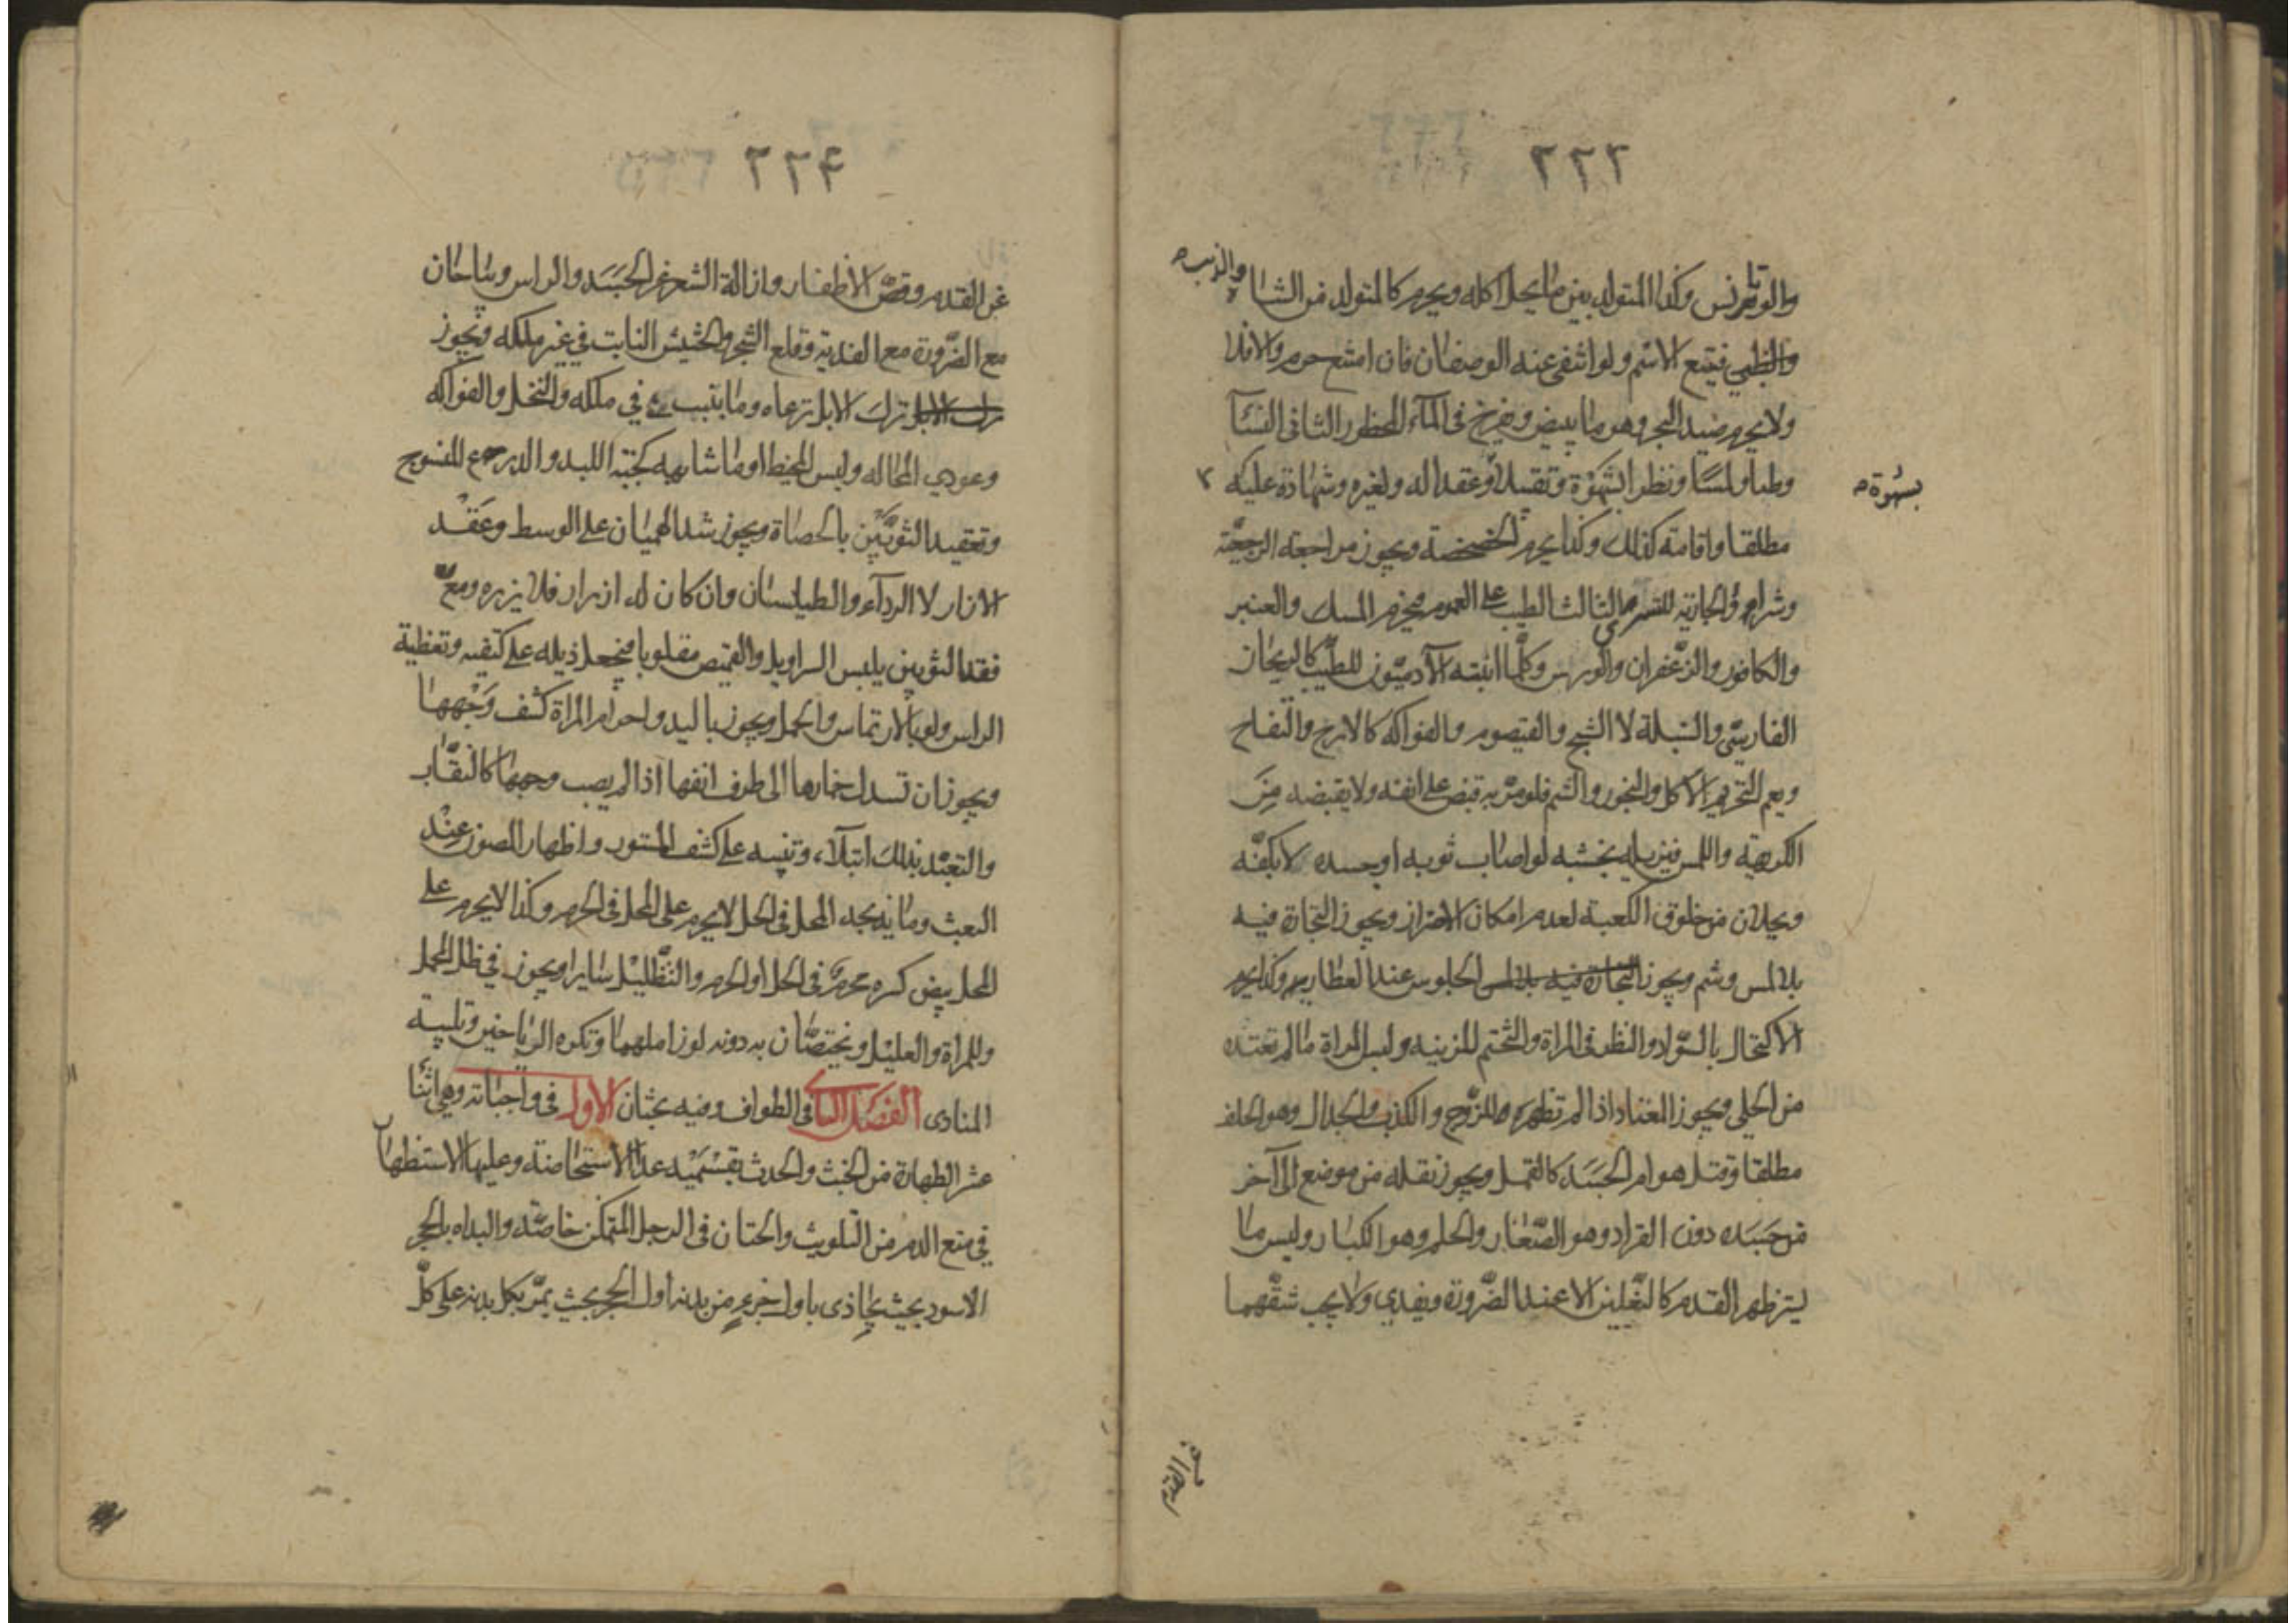 ٢٢٣
والذيب
وكذا المتولد بين ما يحل اكله ويحرم كالمتولد من الشاة
والظبي فيتبع الاسم ولو انتفى عنه الوصفان فان امتنع حرم والا فلا
ولا يحرم صيد البحر وهو ما يبيض ويفرخ في المآء المحظور الثاني النسآ
وطيا ولمسًا ونظر الشهوة وتقبيلا وعقدا له ولغيره وشهادة عليه
بشهوة
مطلقا واقامته كذلك وكذا يحرم الخضخضة ويجوز مراجعة الرجعيّة
وشراء الجارية للتسري الثالث الطيب على العموم فيحرم المسك والعنبر
والكافور والزعفران والورس وكلّما انبته الآدميّون للطيب كالريحان
الفارسيّ والنيلة لا الشيح والقيصوم والفواكه كالاترج والتفاح
ويعم التحريم الاكل والبخور والشم فلو مرّ به قبض على انفه ولا يقبضه مِنَ
الكريهة واللمس فيزيله بخشبه لو اصاب ثوبه او جسده لا بكفّه
ويجلان من خلوق الكعبة لعدم امكان الاحتراز ويجوز التجارة فيه
بلا لمس وشم ويجوز التجارة فيه بلا لمس الجلوس عند العطارين وكذا يحرم
الاكتحال بالسّواد والنظر في المراة والتختم للزينة ولبس المراة ما لم تعتده
من الحلي ويجوز المعتاد اذا لم تظهره للزّوج والكذب والجدال وهو الحلف
مطلقا وقتل هوام الجَسَد كالقمل ويجوز نقله من موضع الى آخر
من جَسَده دون القراد وهو الصّغار والحلم وهو الكبار ولبس ما
يستر ظهر القدم كالنّعلين الا عند الضّرورة ويفدي ولا يجب شقّهما
عن القدم
٢٢٤
عن القدم وقصّ الاظفار وازالة الشعر عن الجَسَد والراس ويباحان
مع الضّرورة مع الفدية وقلع الشجر والحشيش النابت في غير ملكه ويجوز
ترك الابل ترك الابل ترعاه وما ينبت في ملكه والنخل والفواكه
وعودي المحاله ولبس المخيط او ما شابهه كجبّة اللبد والدرع المنسوج
وتعقيد الثوبَيْن بالحصاة ويجوز شد الهميان على الوسط وعَقْد
الازار لا الردآء والطيلسان وان كان له ازرار فلا يزره ومع
فقد الثوبين يلبس السراويل والقميص مقلوبا فيجعل ذيله على كتفيه وتغطية
الراس ولو بالارتماس والحمل ويجوز باليد واحرام المراة كشف وَجْهها
ويجوز ان تسدل خمارها الى طرف انفها اذا لم يصب وجهها كالنقّاب
والتعبّد بذلك ابتلآء، وتنبيه على كشف المستور واظهار المصون عِنْد
البعث وما يذبحه المحل في الحل لا يحرم على المحل في الحرم وكذا لا يحرم على
المحل بيض كسره محرم في الحل او الحرم والتّظليْل سايرا ويجوز في ظل المحمل
وللمراة والعليْل ويختصّان به دونه لو زاملهما وتكره الرياحين وتلبية
المنادى الفصل الثاني في الطواف وفيه بحثان الاول في واجباته وهي اثنا
عشر الطهارة من الخبث والحدث بقسْمَيْه عدا الاستحاضة وعليها الاستظهار
في منع الدم من التلويث والختان في الرجل المتمكن خاصّة والبداه بالحجر
الاسود بحيث يحاذى باول جزءٍ من بدنه اول الحجر بحيث يمرّ بكل بدنه على كلّ